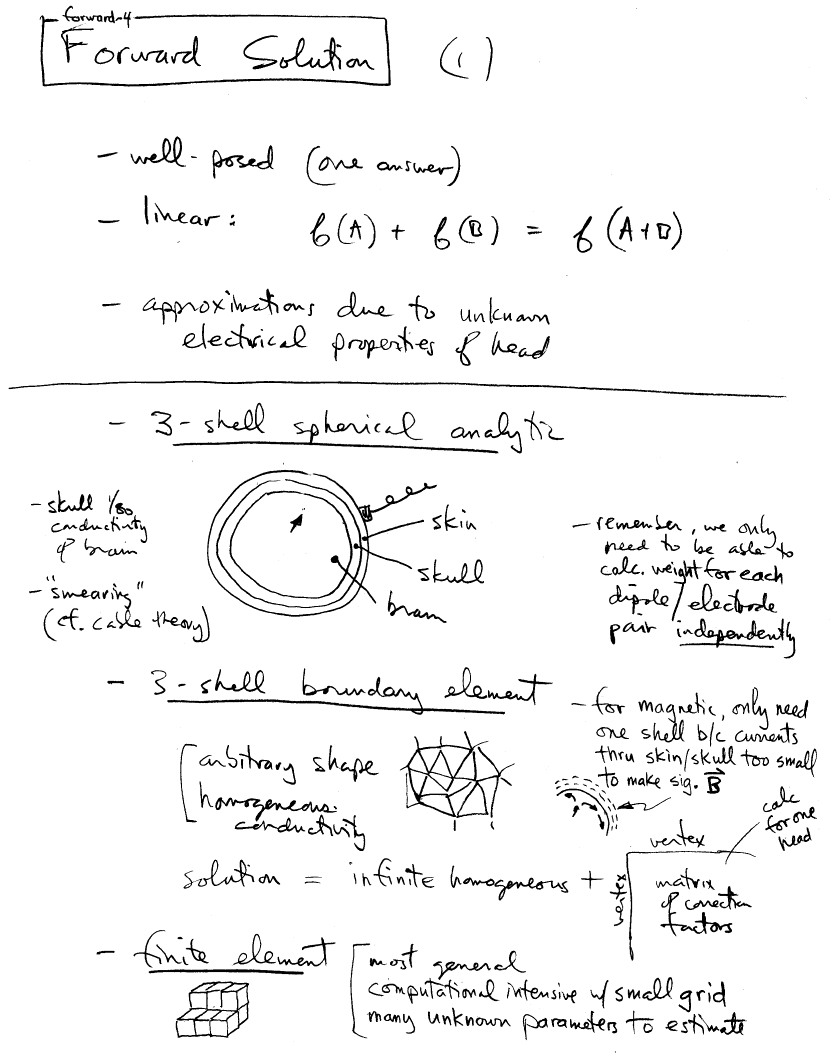 forward-4
Forward Solution (1)
- well-posed (one answer)
- linear: f(A) + f(B) = f(A+B)
- approximations due to unknown
electrical properties of head
- 3-shell spherical analytic
- skull 1/80
conductivity
of brain
- "smearing"
(cf. cable theory)
skin
skull
brain
- remember, we only
need to be able to
calc. weight for each
dipole/electrode
pair independently
- 3-shell boundary element
arbitrary shape
homogeneous
conductivity
- for magnetic, only need
one shell b/c currents
thru skin/skull too small
to make sig. B⃗
calc
for one
head
solution = infinite homogeneous +
vertex
vertex
matrix
of correction
factors
- finite element
most general
computational intensive w/ small grid
many unknown parameters to estimate